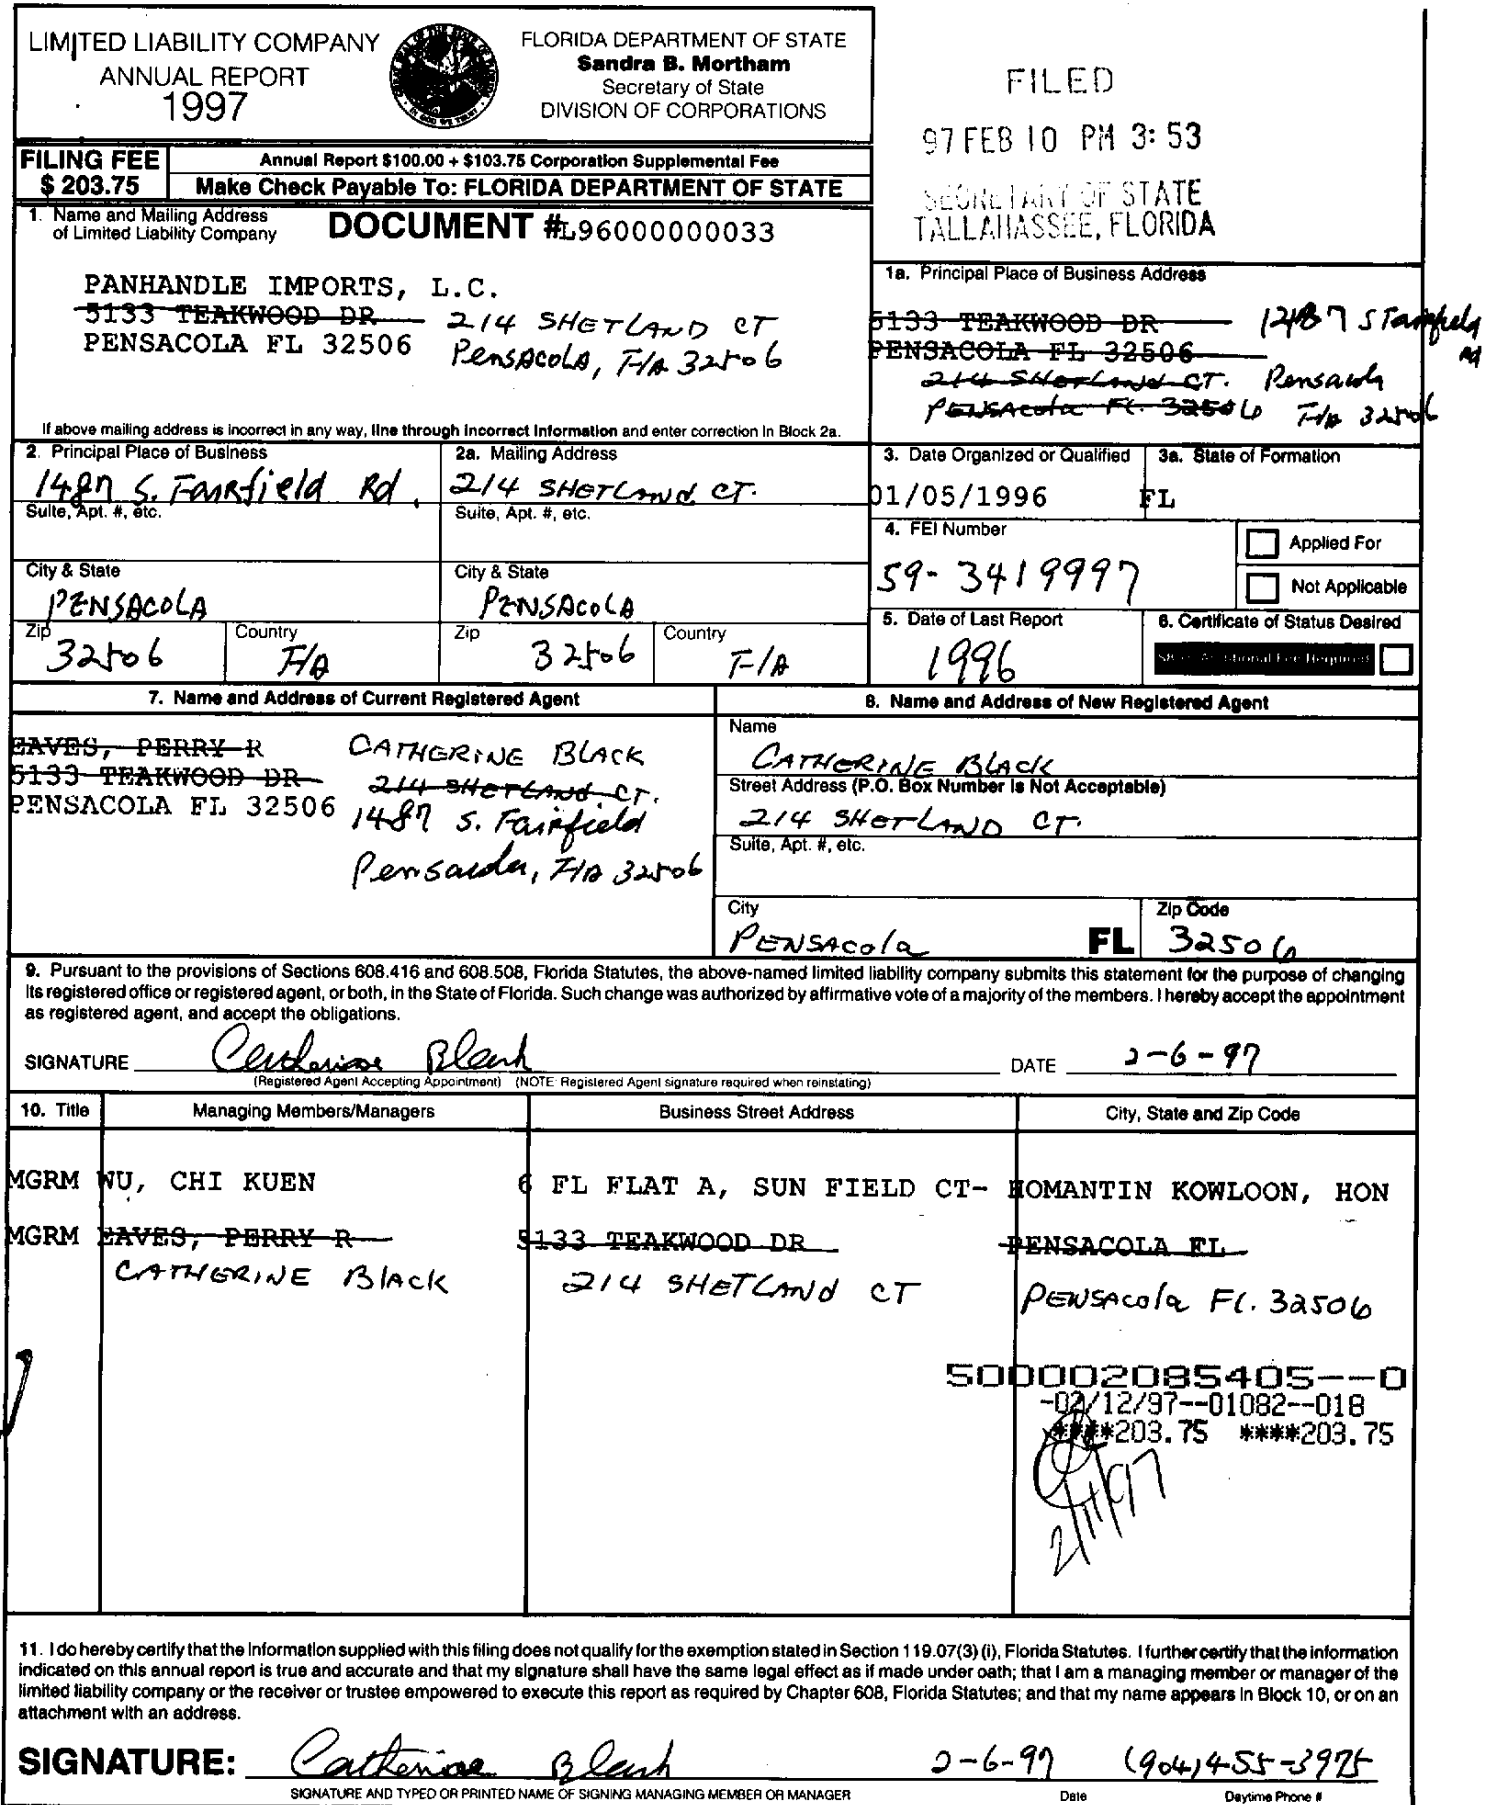 LIMITED LIABILITY COMPANY
ANNUAL REPORT
1997
FLORIDA DEPARTMENT OF STATE
Sandra B. Mortham
Secretary of State
DIVISION OF CORPORATIONS
FILED
97 FEB 10 PM 3:53
SECRETARY OF STATE
TALLAHASSEE, FLORIDA
FILING FEE
$ 203.75
Annual Report $100.00 + $103.75 Corporation Supplemental Fee
Make Check Payable To: FLORIDA DEPARTMENT OF STATE
1. Name and Mailing Address
of Limited Liability Company
DOCUMENT #L96000000033
PANHANDLE IMPORTS, L.C.
5133 TEAKWOOD DR 214 SHETLAND CT
PENSACOLA FL 32506 Pensacola, Fla 32506
If above mailing address is incorrect in any way, line through incorrect information and enter correction in Block 2a.
1a. Principal Place of Business Address
5133 TEAKWOOD DR 1487 S Fairfield Rd
PENSACOLA FL 32506
214 Shetland CT. Pensacola
PENSAcola FL. 32506 Fla 32506
2. Principal Place of Business
1487 S. Fairfield Rd.
Suite, Apt. #, etc.
City & State
PENSACOLA
Zip
32506
Country
Fla
2a. Mailing Address
214 SHETLAND CT.
Suite, Apt. #, etc.
City & State
PENSACOLA
Zip
32506
Country
Fla
3. Date Organized or Qualified
01/05/1996
3a. State of Formation
FL
4. FEI Number
59-3419997
Applied For
Not Applicable
5. Date of Last Report
1996
6. Certificate of Status Desired
Additional Fee Required
7. Name and Address of Current Registered Agent
EAVES, PERRY R CATHERINE BLACK
5133 TEAKWOOD DR 214 SHETLAND CT.
PENSACOLA FL 32506 1487 S. Fairfield
Pensacola, Fla 32506
8. Name and Address of New Registered Agent
Name
CATHERINE BLACK
Street Address (P.O. Box Number Is Not Acceptable)
214 SHETLAND CT.
Suite, Apt. #, etc.
City
PENSACola
FL
Zip Code
32506
9. Pursuant to the provisions of Sections 608.416 and 608.508, Florida Statutes, the above-named limited liability company submits this statement for the purpose of changing
its registered office or registered agent, or both, in the State of Florida. Such change was authorized by affirmative vote of a majority of the members. I hereby accept the appointment
as registered agent, and accept the obligations.
SIGNATURE Catherine Black DATE 2-6-97
(Registered Agent Accepting Appointment) (NOTE: Registered Agent signature required when reinstating)
10. Title Managing Members/Managers Business Street Address City, State and Zip Code
MGRM WU, CHI KUEN 6 FL FLAT A, SUN FIELD CT- HOMANTIN KOWLOON, HON
MGRM EAVES, PERRY R 5133 TEAKWOOD DR PENSACOLA FL
CATHERINE BLACK 214 SHETLAND CT PENSACola FL. 32506
500002085405--0
-02/12/97--01082--018
****203.75 ****203.75
2/11/97
11. I do hereby certify that the information supplied with this filing does not qualify for the exemption stated in Section 119.07(3) (i), Florida Statutes. I further certify that the information
indicated on this annual report is true and accurate and that my signature shall have the same legal effect as if made under oath; that I am a managing member or manager of the
limited liability company or the receiver or trustee empowered to execute this report as required by Chapter 608, Florida Statutes; and that my name appears in Block 10, or on an
attachment with an address.
SIGNATURE: Catherine Black 2-6-97 (904)455-3975
SIGNATURE AND TYPED OR PRINTED NAME OF SIGNING MANAGING MEMBER OR MANAGER Date Daytime Phone #